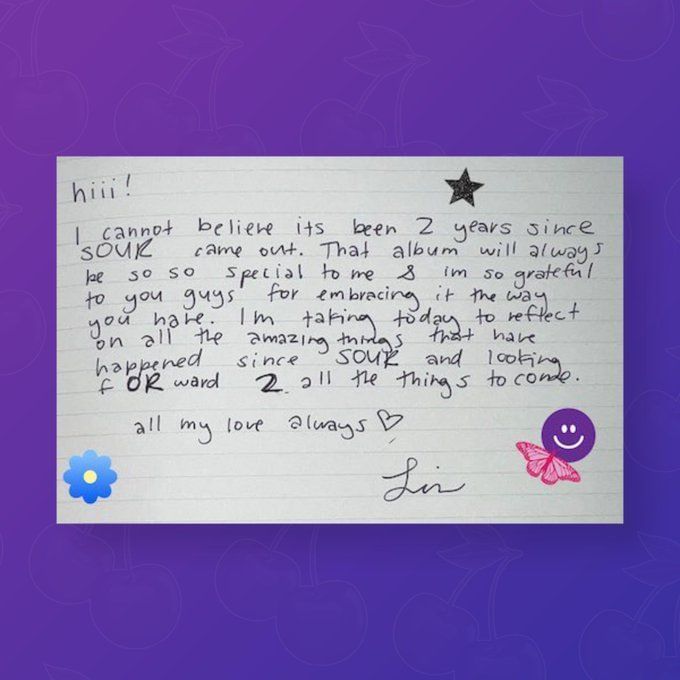 hiii!
I cannot believe its been 2 years since
SOUR came out. That album will always
be so so special to me & im so grateful
to you guys for embracing it the way
you have. Im taking today to reflect
on all the amazing things that have
happened since SOUR and looking
f OR ward 2 all the things to come.
all my love always ♡
Liv